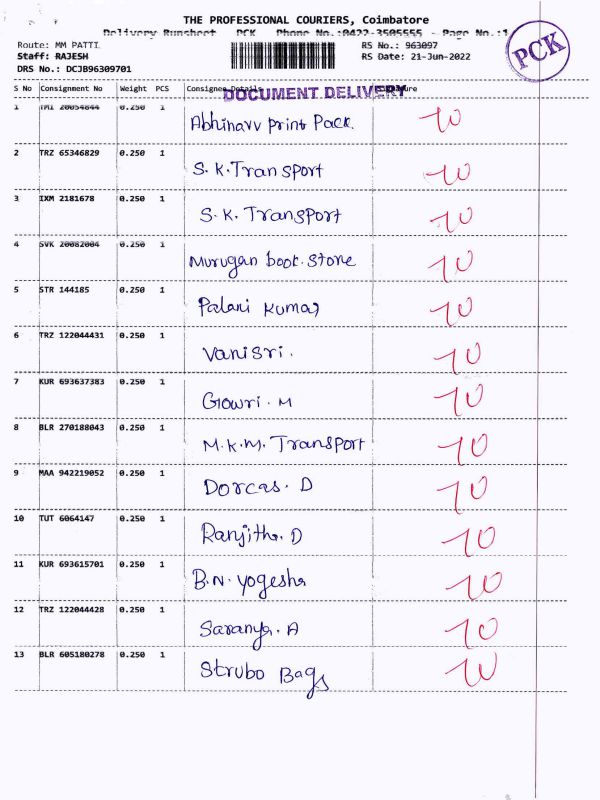 THE PROFESSIONAL COURIERS, Coimbatore
Delivery Runsheet PCK Phone No.:0422-3505555 - Page No.:1
Route: MM PATTI
RS No.: 963097
Staff: RAJESH
RS Date: 21-Jun-2022
DRS No.: DCJB96309701
PCK
S No Consignment No Weight PCS Consignee Details
DOCUMENT DELIVERY
1 20054844 0.250 1 Abhinavv Print Pack. 10
2 TRZ 65346829 0.250 1 S.K.Transport 10
3 IXM 2181678 0.250 1 S.K. Transport 10
4 SVK 20082004 0.250 1 Murugan book.Store 10
5 STR 144185 0.250 1 Palani Kumar 10
6 TRZ 122044431 0.250 1 Vanisri. 10
7 KUR 693637383 0.250 1 Gowri. M 10
8 BLR 270188043 0.250 1 M.K.M. Transport 10
9 MAA 942219052 0.250 1 Dorcas. D 10
10 TUT 6064147 0.250 1 Ranjitha. D 10
11 KUR 693615701 0.250 1 B.N. Yogesha 10
12 TRZ 122044428 0.250 1 Saranya. A 10
13 BLR 605180278 0.250 1 Strubo Bags 10